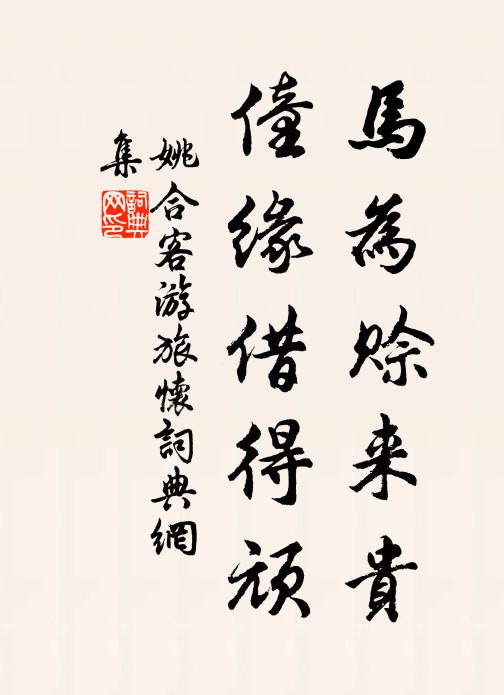 馬為賒来貴
僮緣借得頑
姚合客游旅懷詞典網
集
詞典網印